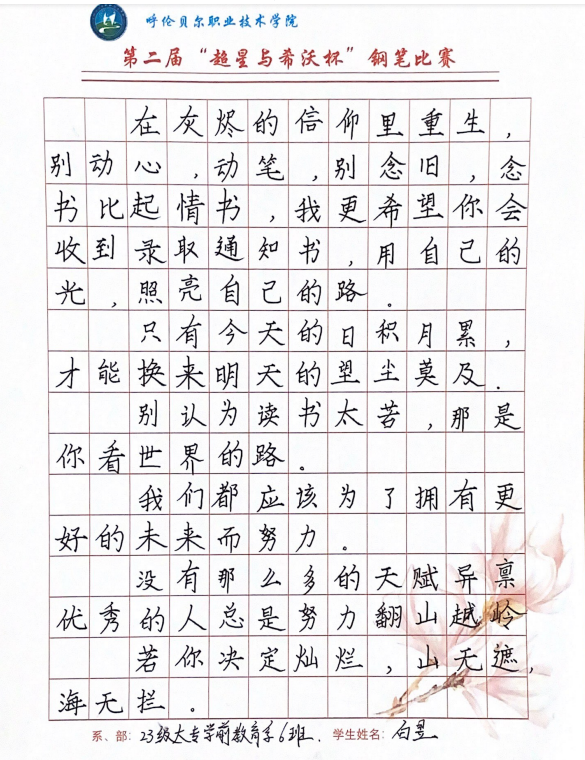 呼伦贝尔职业技术学院
第二届“超星与希沃杯”钢笔比赛
在灰烬的信仰里重生，
别动心，动笔，别念旧，念
书比起情书，我更希望你会
收到录取通知书，用自己的
光，照亮自己的路。
只有今天的日积月累，
才能换来明天的望尘莫及.
别认为读书太苦，那是
你看世界的路。
我们都应该为了拥有更
好的未来而努力。
没有那么多的天赋异禀
优秀的人总是努力翻山越岭
若你决定灿烂，山无遮，
海无拦。
系、部：23级大专学前教育系6班. 学生姓名：白昱